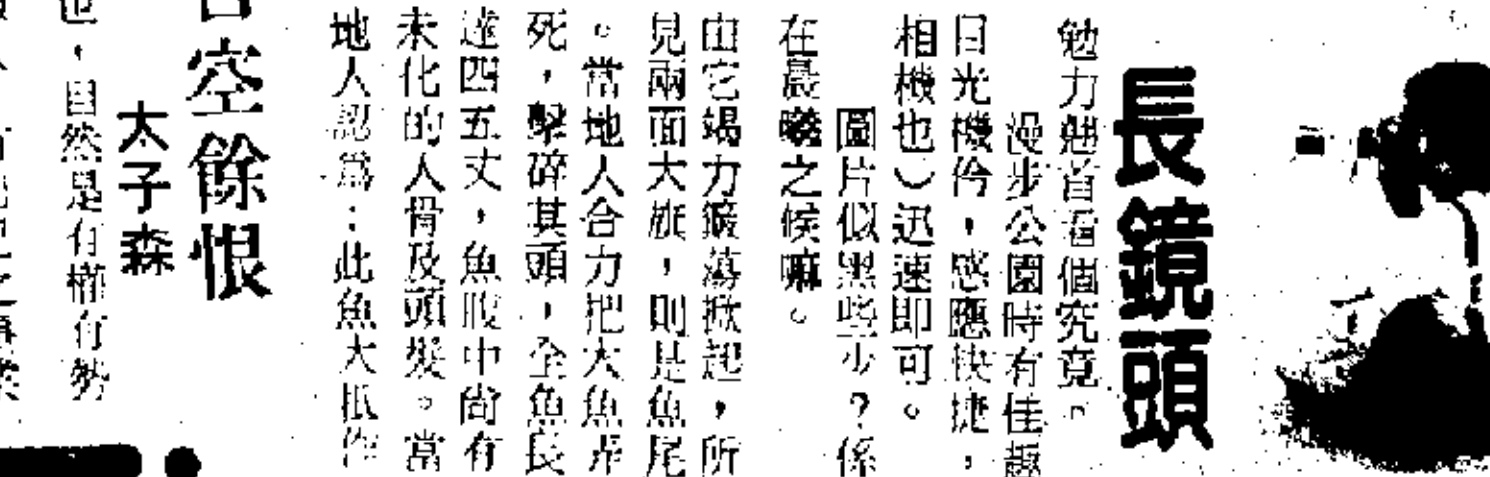 長鏡頭
勉力翹首看個究竟。
漫步公園時有佳趣
目光機伶，感應快捷，
相機也）迅速即可。
圖片似黑些少？係
在晨曦之候嘛。
由它竭力蕩掀起，所
見兩面大旗，則是魚尾
。當地人合力把大魚弄
死，擊碎其頭，全魚長
達四五丈，魚腹中尚有
未化的人骨及頭髮。當
地人認爲：此魚大抵作
空餘恨
太子森
也，自然是有權有勢